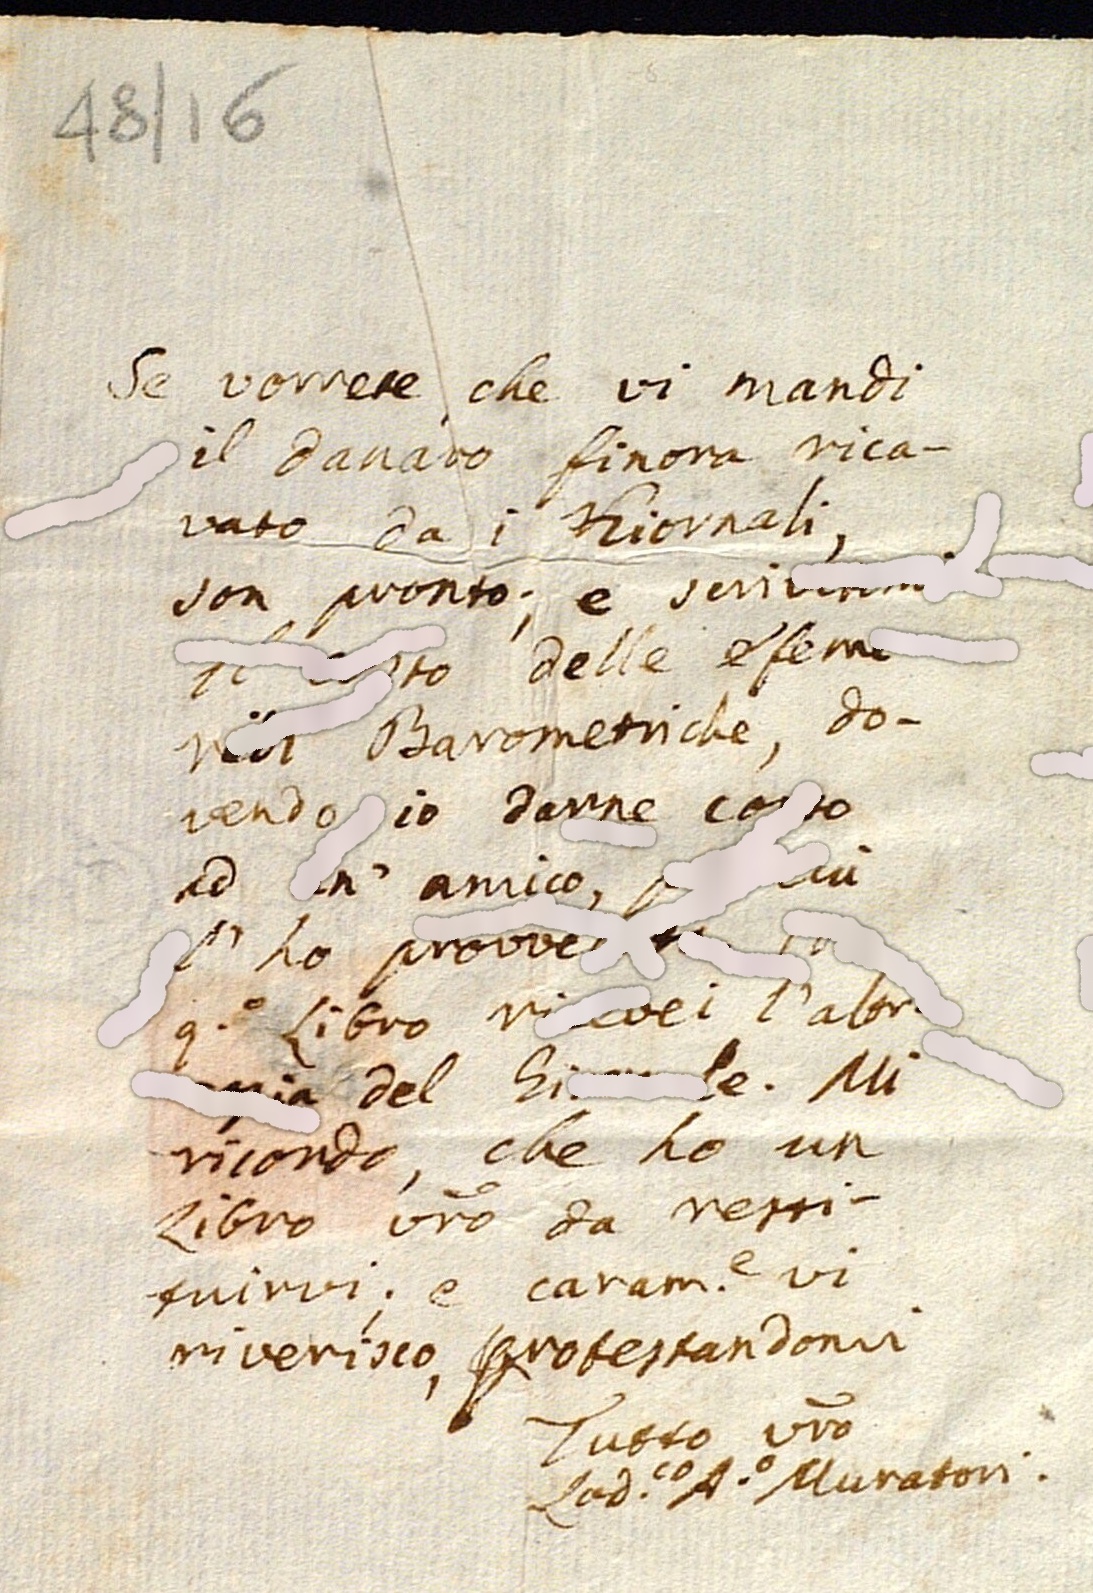 48/16
Se vorrete che vi mandi
il danaro finora rica-
vato da i Giornali,
son pronto; e
delle
Barometriche, do-
vendo io darne
ad un' amico,
l' ho
q.o Libro ricevei l'altra
del Mi
ricordo, che ho un
Libro vro da resti-
tuirvi; e caram.e vi
riverisco, protestandomi
Tutto vro
Lod.co A.o Muratori.